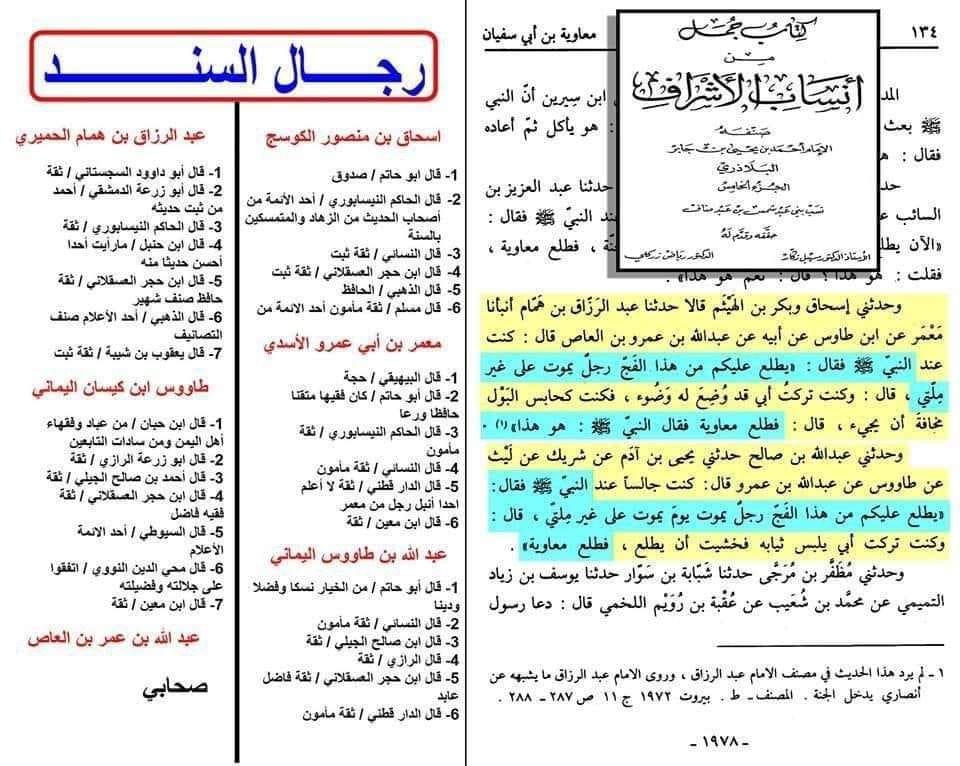 رجال السند
اسحاق بن منصور الكوسج
1- قال ابو حاتم / صدوق
2- قال الحاكم النيسابوري / أحد الأئمة من
أصحاب الحديث من الزهاد والمتمسكين
بالسنة
3- قال النسائي / ثقة ثبت
4- قال ابن حجر العسقلاني / ثقة ثبت
5- قال الذهبي / الحافظ
6- قال مسلم / ثقة مأمون أحد الائمة من
معمر بن أبي عمرو الأسدي
1- قال البيهيقي / حجة
2- قال أبو حاتم / كان فقيها متقنا
حافظا ورعا
3- قال الحاكم النيسابوري / ثقة
مأمون
4- قال النسائي / ثقة مأمون
5- قال الدار قطني / ثقة لا أعلم
احدا أنبل رجل من معمر
6- قال ابن معين / ثقة
عبد الله بن طاووس اليماني
1- قال أبو حاتم / من الخيار نسكا وفضلا
ودينا
2- قال النسائي / ثقة مأمون
3- قال ابن صالح الجيلي / ثقة
4- قال الرازي / ثقة
5- قال ابن حجر العسقلاني / ثقة فاضل
عابد
6- قال الدار قطني / ثقة مأمون
عبد الرزاق بن همام الحميري
1- قال أبو داوود السجستاني / ثقة
2- قال أبو زرعة الدمشقي / أحمد
من ثبت حديثه
3- قال الحاكم النيسابوري / ثقة
4- قال ابن حنبل / مارأيت أحدا
أحسن حديثا منه
5- قال ابن حجر العسقلاني / ثقة
حافظ صنف شهير
6- قال الذهبي / أحد الأعلام صنف
التصانيف
7- قال يعقوب بن شيبة / ثقة ثبت
طاووس ابن كيسان اليماني
1- قال ابن حبان / من عباد وفقهاء
أهل اليمن ومن سادات التابعين
2- قال ابو زرعة الرازي / ثقة
3- قال أحمد بن صالح الجيلي / ثقة
4- قال ابن حجر العسقلاني / ثقة
فقيه فاضل
5- قال السيوطي / أحد الائمة
الأعلام
6- قال محي الدين النووي / اتفقوا
على جلالته وفضيلته
7- قال ابن معين / ثقة
عبد الله بن عمر بن العاص
صحابي
١٣٤
معاوية بن أبي سفيان
كتاب جمل
من
أنساب الأشراف
صنفه
الإمام أحمد بن يحيى بن جابر
البلاذري
الجزء الخامس
نسب بني عبد شمس بن عبد مناف
حققه وقدم له
الأستاذ الدكتور سهيل زكار
الدكتور رياض زركلي
ابن سيرين أنّ النبي
ﷺ بعث
: هو يأكل ثمّ أعاده
فقال :
حدثنا عبد العزيز بن
السائب
عند النبيّ ﷺ فقال :
«الآن
، فطلع معاوية ،
فقلت : هو هذا؟ قال : نعم هو هذا»
وحدثني إسحاق وبكر بن الهَيْثم قالا حدثنا عبد الرَزّاق بن هَمّام أنبأنا
مَعْمَر عن ابن طاوس عن أبيه عن عبدالله بن عمرو بن العاص قال : كنت
عند النبيّ ﷺ فقال : «يطلع عليكم من هذا الفَجّ رجلٌ يموت على غير
مِلّتي ، قال : وكنت تركتُ أبي قد وُضِعَ له وَضُوء ، فكنت كحابس البَوْل
مخافةَ أن يجيء ، قال : فطلع معاوية فقال النبيّ ﷺ : هو هذا» (١) .
وحدثني عبدالله بن صالح حدثني يحيى بن آدَم عن شريك عن لَيْث
عن طاووس عن عبدالله بن عمرو قال: كنت جالساً عند النبيّ ﷺ فقال:
«يطلع عليكم من هذا الفَجّ رجلٌ يموت يومَ يموت على غير مِلتّي ، قال :
وكنت تركت أبي يلبس ثيابه فخشيت أن يطلع ، فطلع معاوية» .
وحدثني مُظَفَّر بن مُرَجَّى حدثنا شَبّابة بن سَوّار حدثنا يوسف بن زياد
التميمي عن محمد بن شُعَيب عن عُقْبة بن رُوَيْم اللخمي قال : دعا رسول
١ - لم يرد هذا الحديث في مصنف الامام عبد الرزاق ، وروى الامام عبد الرزاق ما يشبهه عن
أنصاري يدخل الجنة . المصنف - ط . بيروت ١٩٧٢ ج ١١ ص ٢٨٧ - ٢٨٨ .
- ١٩٧٨ -